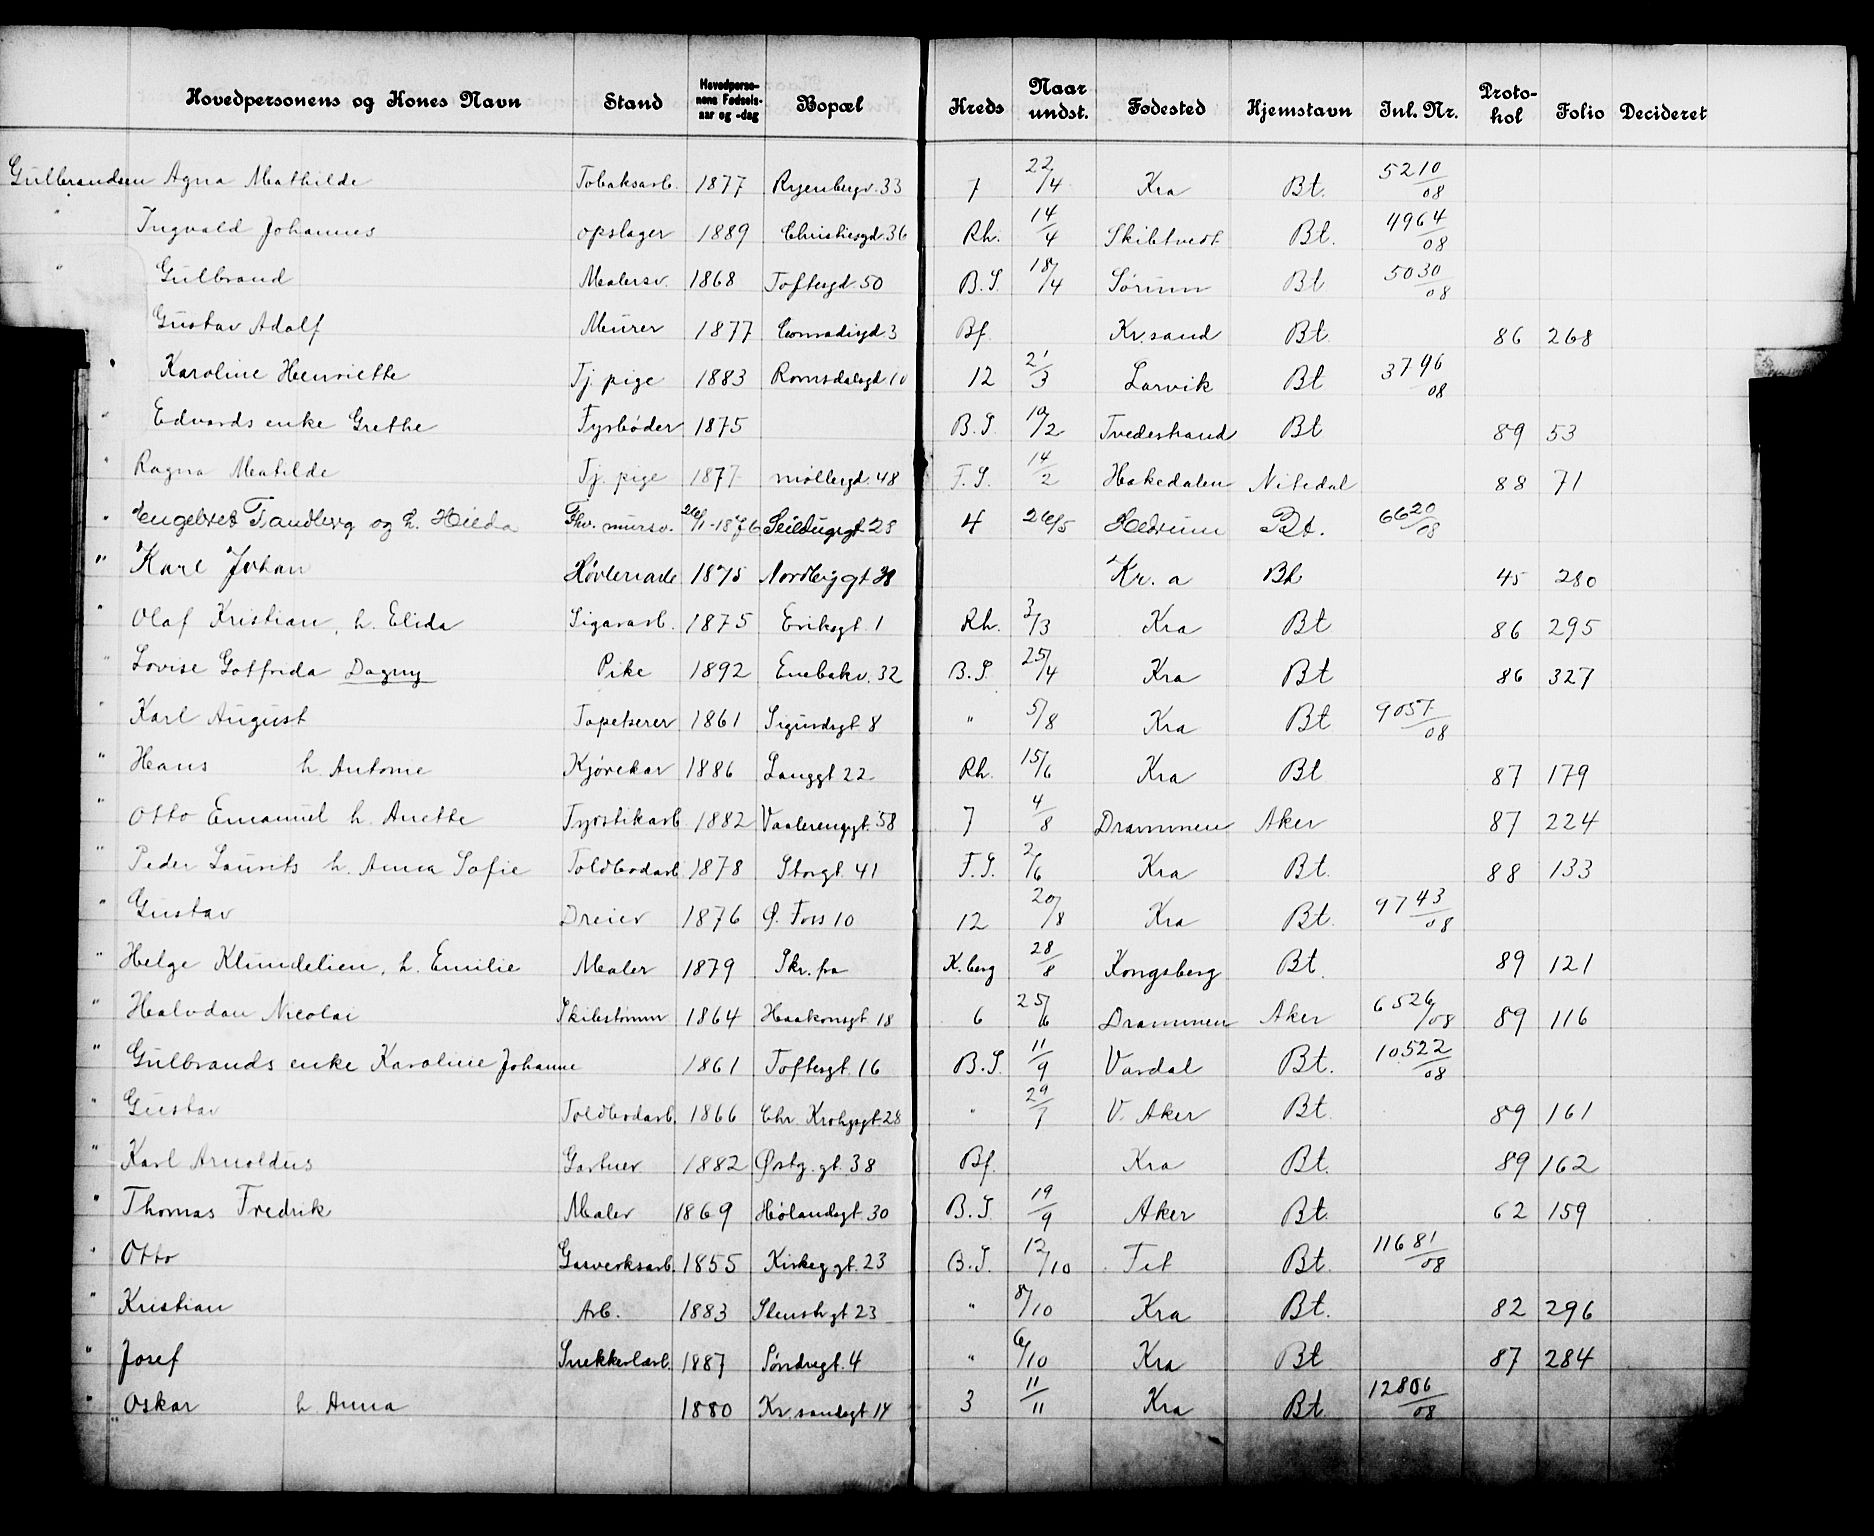 Hovedpersonens og Kones Navn Stand Hovedperso-nens Fødsels-aar og -dag Bopæl Kreds Naar undst. Fødested Hjemstavn Inl. Nr. Proto-hol Folio Decideret
Gulbrandsen Agna Mathilde Tobaksarb. 1877 Ryenbergv. 33 7 22/4 Kra Bt. 5210/08
" Ingvald Johannes opslager 1889 Christiesgd 36 Rh. 14/4 Skibtvedt Bt. 4964/08
" Gulbrand Malersv. 1868 Toftesgd 50 B.S. 18/4 Sørum Bt 5030/08
Gustav Adolf Murer 1877 Conradisgd 3 Bf. Kr.sand Bt. 86 268
" Karoline Henriette Tj. pige 1883 Romsdalsgd 10 12 21/3 Larvik Bt 3796/08
" Edvards enke Grethe Fyrbøder 1875 B.S. 10/2 Tvedestrand Bt 89 53
" Ragna Matilde Tj. pige 1877 møllergd. 48 F.S. 14/2 Hakedalen Nitedal 88 71
" Engebret Tandberg og h. Hilda Fhv. mursv. 26/1-1876 Seildugsgt 28 4 26/5 Hedrum Bt. 6620/08
" Karl Johan Høvleriarb 1875 Nordbygt 38 Kr. a Bt 45 280
" Olaf Kristian, h. Elida Sigararb. 1875 Eriksgt. 1 Rh. 3/3 Kra Bt 86 295
" Lovise Gotfrida Dagny Pike 1892 Enebakv. 32 B.S. 25/4 Kra Bt 86 327
" Karl August Tapetserer 1861 Sigurdsgt. 8 " 5/8 Kra Bt 9057/08
" Hans h. Antonie Kjørekar 1886 Langgt 22 Rh. 15/6 Kra Bt 87 179
" Otto Emanuel h. Anette Fyrstikarb 1882 Vaalerenggt. 58 7 4/8 Drammen Aker 87 224
" Peder Laurits h. Anna Sofie Toldbodarb. 1878 Storgt. 41 F.S. 2/6 Kra Bt. 88 133
" Gustav Dreier 1876 Ø. Foss 10 12 20/8 Kra Bt. 9743/08
" Helge Klundelien, h. Emilie Maler 1879 Skr. fra K.berg 28/8 Kongsberg Bt. 89 121
" Halvdan Nicolai Skibstømm 1864 Haakonsgt 18 6 25/6 Drammen Aker 6526/08 89 116
" Gulbrands enke Karoline Johanne 1861 Toftesgt. 16 B.S. 11/9 Vardal Bt. 10.522/08
" Gustav Toldbodarb. 1866 Chr. Krohgsgt 28 " 29/7 V. Aker Bt. 89 161
" Karl Arnoldus Gartner 1882 Østg. gt. 38 Bf. Kra Bt. 89 162
" Thomas Fredrik Maler 1869 Hølandsgt. 30 B.S. 19/9 Aker Bt. 62 159
" Otto Garverksarb. 1855 Kirkeg gt. 23 B.S. 12/10 Fet Bt. 11681/08
" Kristian Arb. 1883 Stenstr gt 23 " 8/10 Kra Bt. 82 296
" Josef Snekkerlærl. 1887 Søndregt. 4 " 6/10 Kra Bt 87 284
" Oskar h. Anna 1880 Kr.sandsgt 14 3 11/11 Kra Bt. 12806/08
"